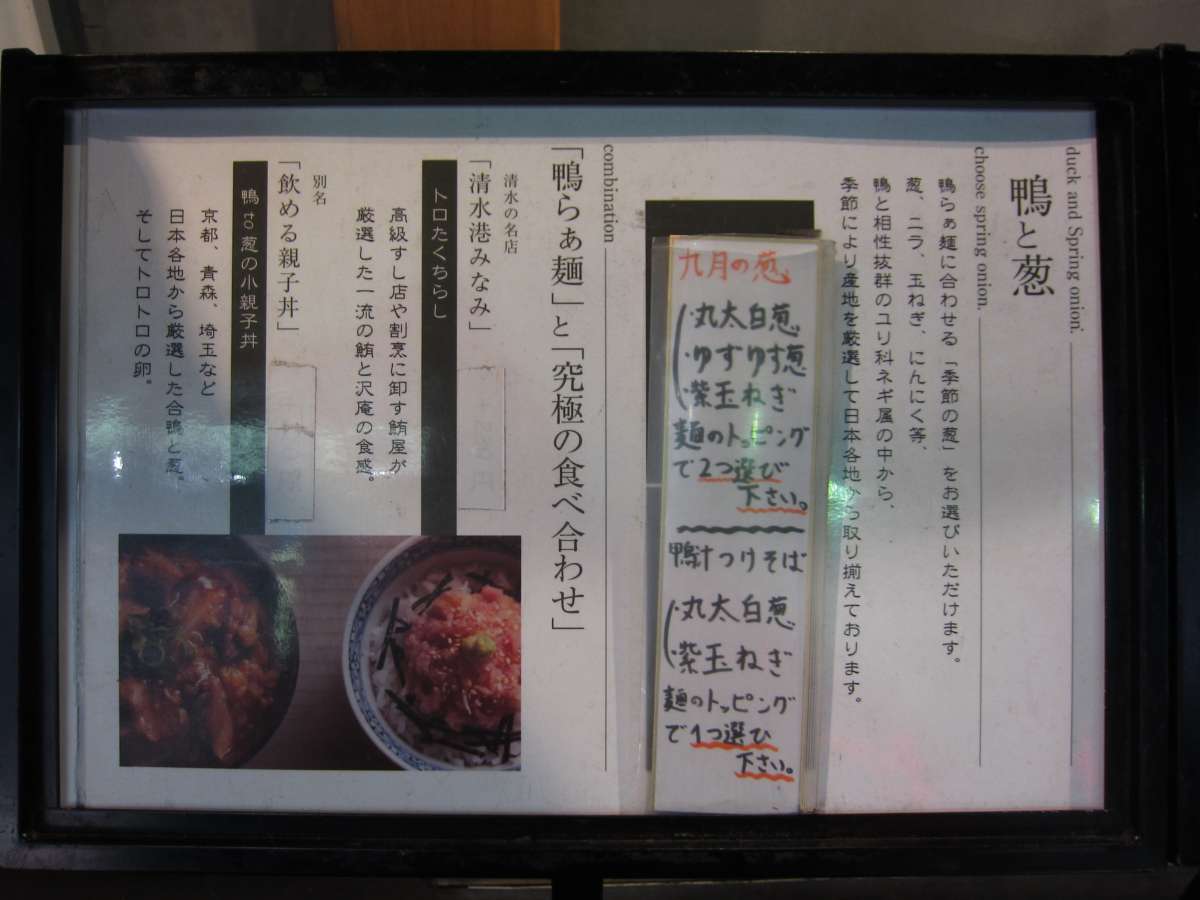 duck and Spring onion.
鴨と葱
choose spring onion.
鴨らぁ麺に合わせる「季節の葱」をお選びいただけます。
葱、ニラ、玉ねぎ、にんにく等、
鴨と相性抜群のユリ科ネギ属の中から、
季節により産地を厳選して日本各地から取り揃えております。
九月の葱
・丸太白葱
・ゆすりゆす葱
・紫玉ねぎ
麺のトッピング
で2つ選び
下さい。
鴨汁つけそば
・丸太白葱
・紫玉ねぎ
麺のトッピング
で1つ選び
下さい。
combination
「鴨らぁ麺」と「究極の食べ合わせ」
清水の名店
「清水港みなみ」
トロたくちらし
高級すし店や割烹に卸す鮪屋が
厳選した一流の鮪と沢庵の食感。
別名
「飲める親子丼」
鴨 to 葱の小親子丼
京都、青森、埼玉など
日本各地から厳選した合鴨と葱。
そしてトロトロの卵。